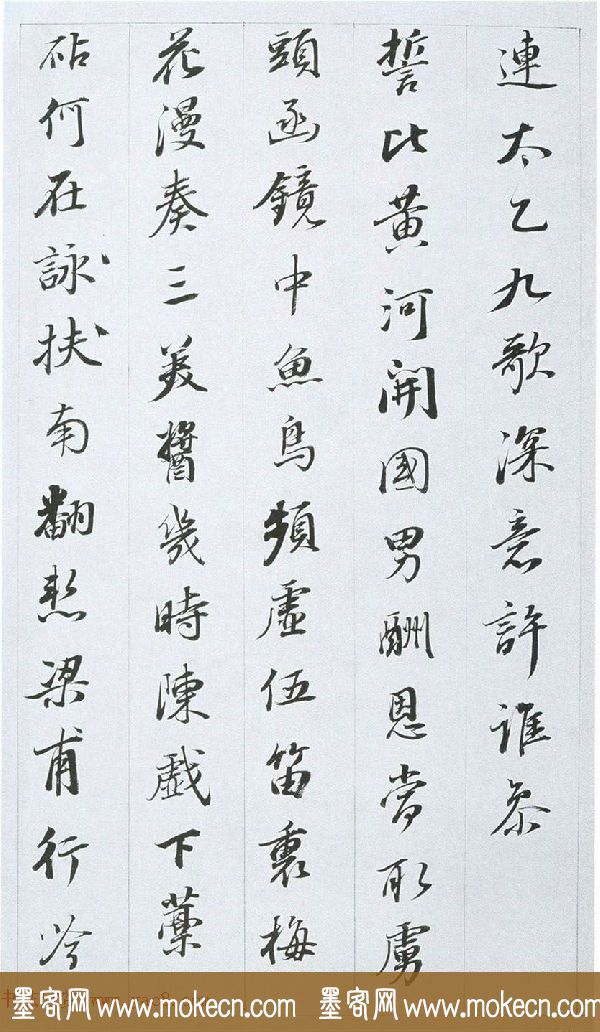 連太乙九歌深意許誰參
誓比黃河開國男酬恩當取虜
頭函鏡中魚鳥頻虛伍笛裏梅
花漫奏三美醬幾時陳戲下藁
砧何在詠扶南翻愁梁甫行吟
墨客网 www.mokecn.com 墨客网 www.mokecn.com